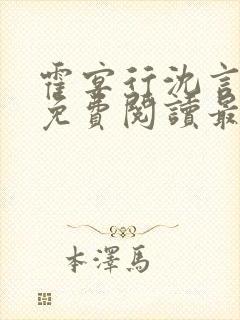 霍宴行沈言
免費閱讀最
本澤馬